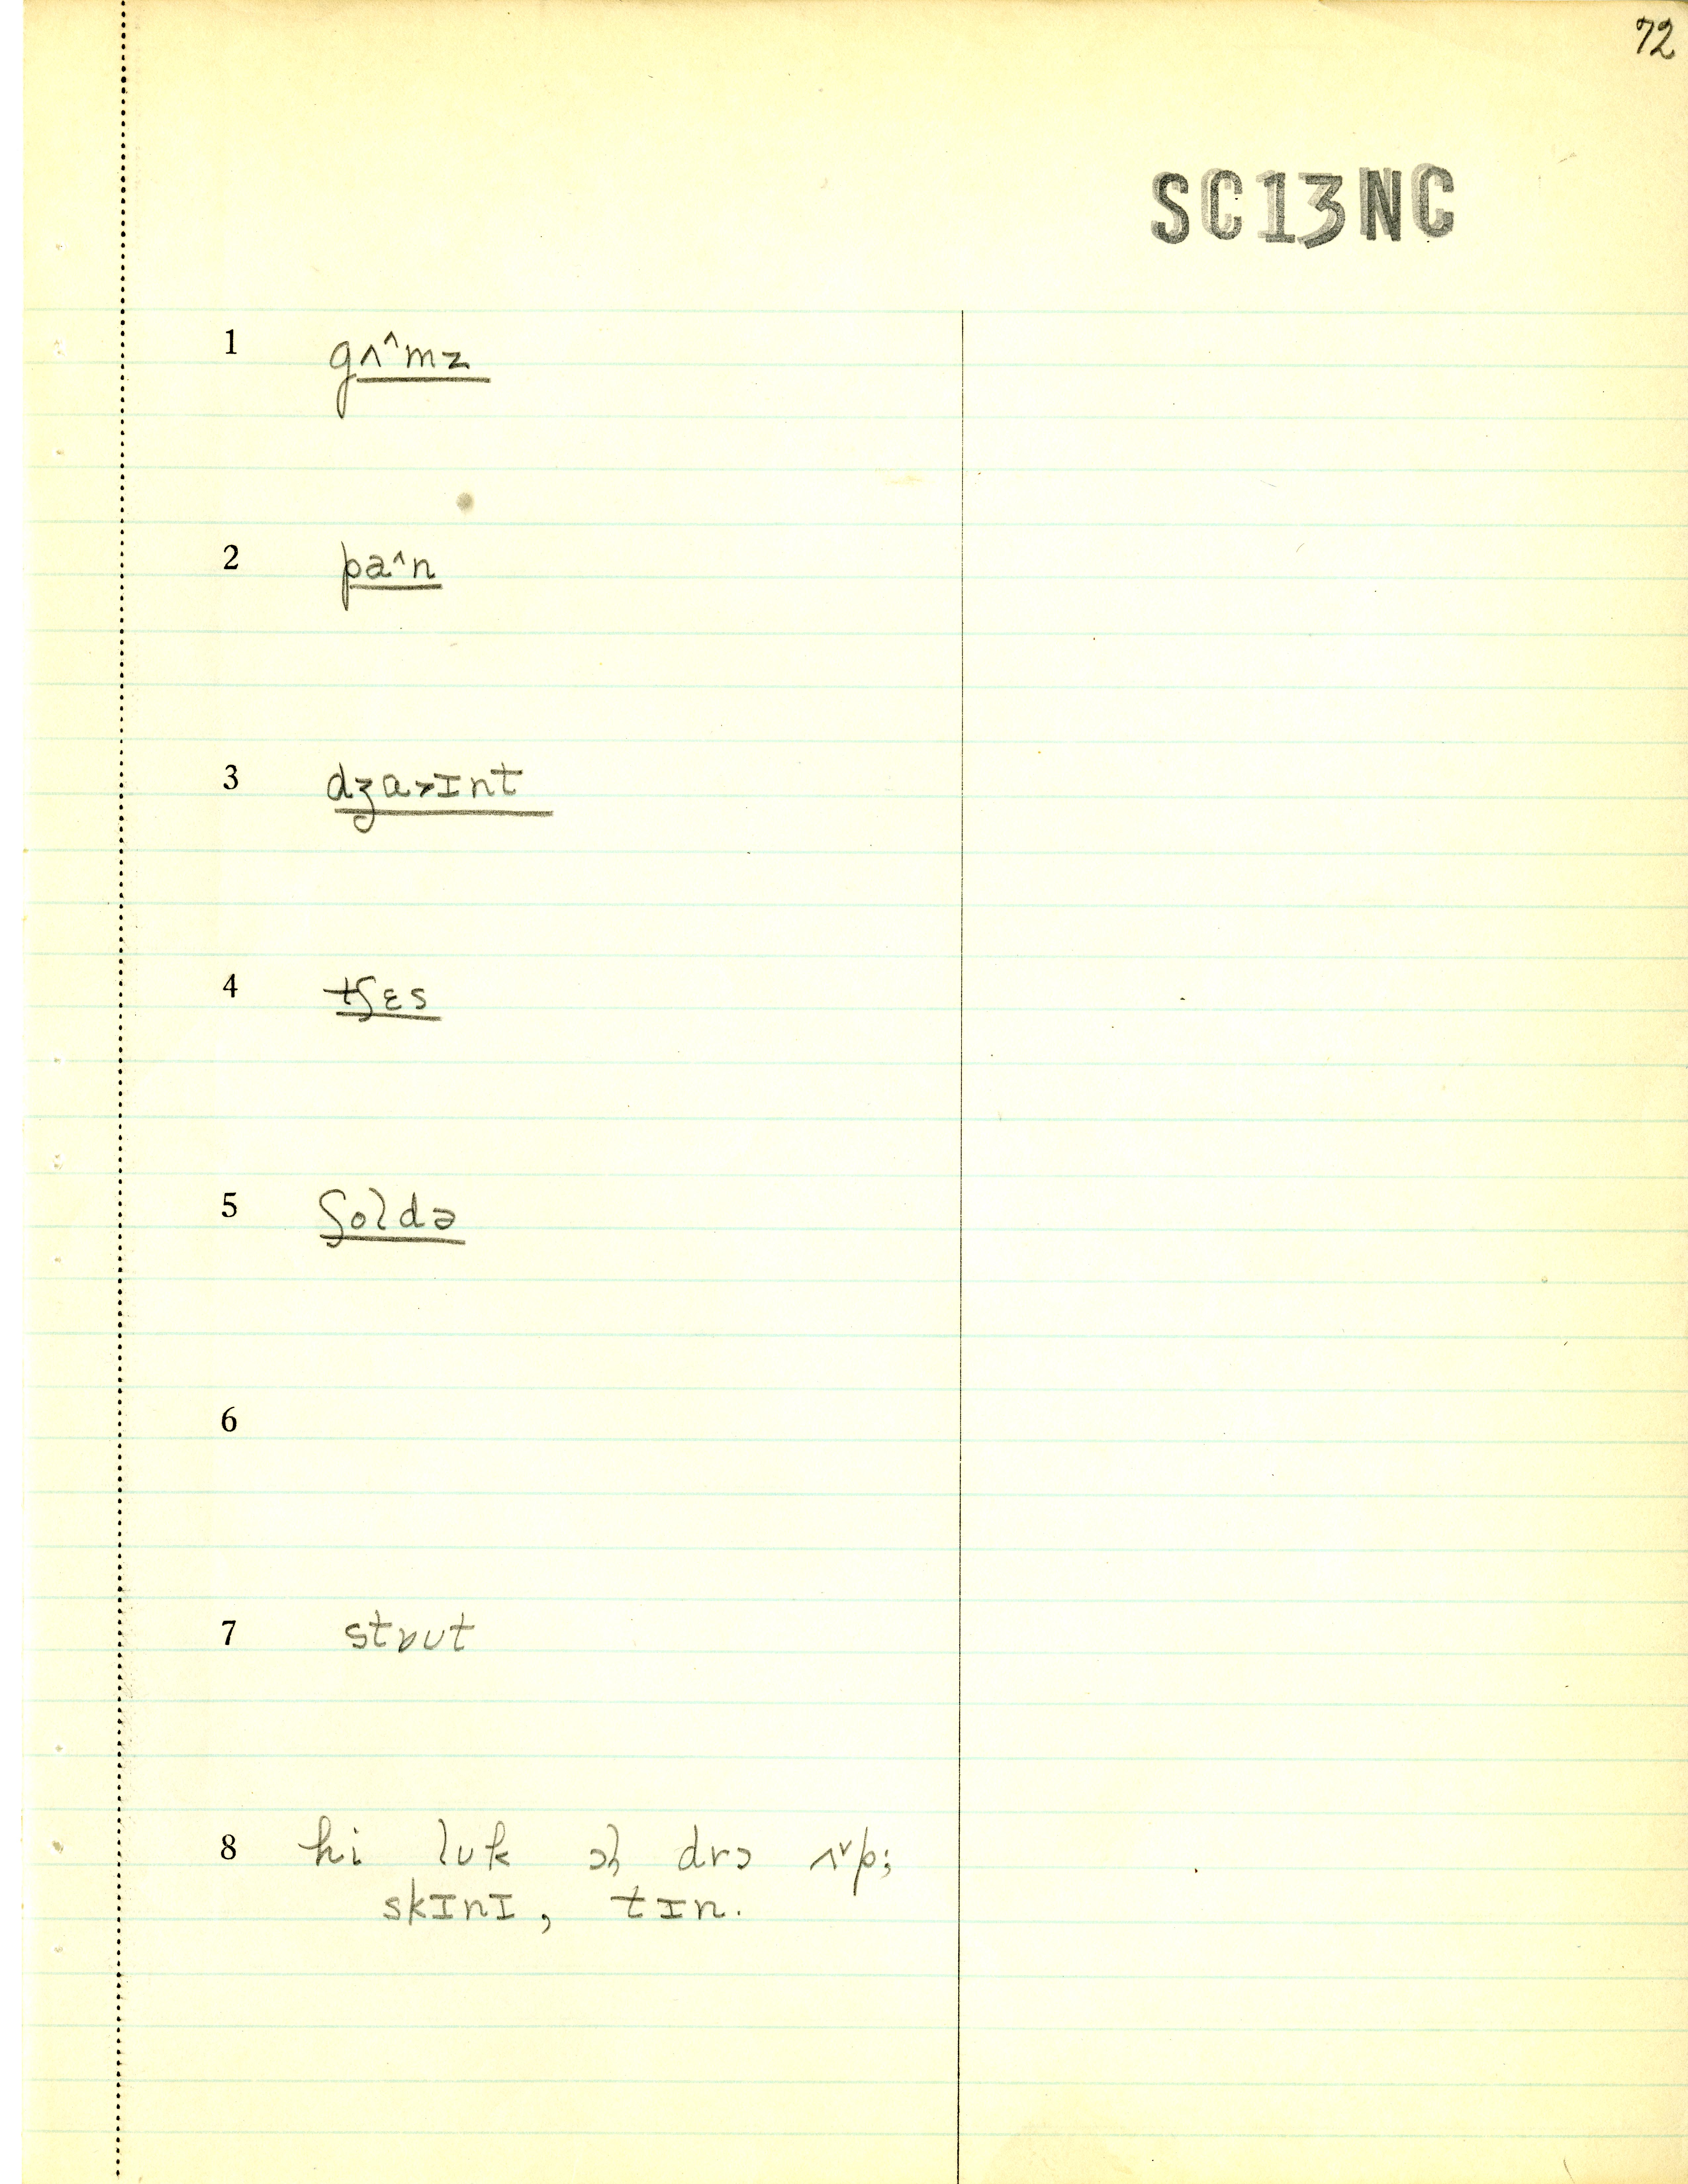 72
SC13NC
1 gʌ^mz
2 pa^n
3 dʒɑ>ɪnt
4 tʃɛs
5 ʃoldə
6
7 strut
8 hi luk ɔl drɔ ʌ˅p;
skɪnɪ, tɪn.